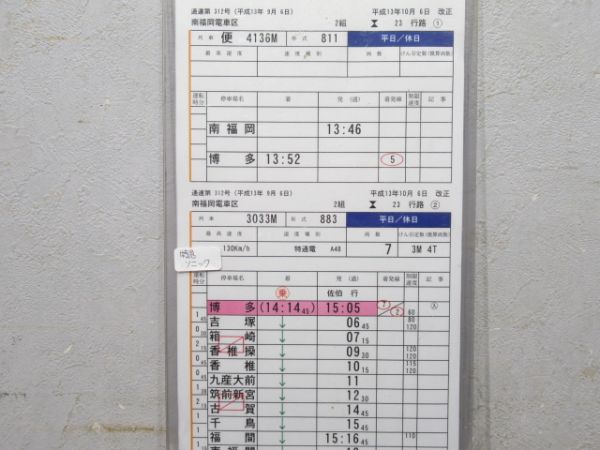 通達第 312号 (平成13年 9月 6日) 平成13年10月 6日 改正
南福岡電車区 2組 23 行路 ①
列車 便 4136M 形式 811 平日/休日
最高速度 速度種別 両数 けん引定数(換算両数)
運転時分 停車場名 着 発(通) 着発線 制限速度 記事
南福岡 13:46
博多 13:52 5
通達第 312号 (平成13年 9月 6日) 平成13年10月 6日 改正
南福岡電車区 2組 23 行路 ②
列車 3033M 形式 883 平日/休日
最高速度 速度種別 両数 けん引定数(換算両数)
130Km/h 特通電 A48 7 3M 4T
ソニック
運転時分 停車場名 着 発(通) 着発線 制限速度 記事
乗 佐伯 行
博多 (14:14 45) 15:05 1 2 60
吉塚 ↓ 06 45 80 120
箱崎 ↓ 07 15
香椎操 ↓ 09 30 120 120
香椎 ↓ 10 15 115 120
九産大前 ↓ 11
筑前新宮 ↓ 12 30
古賀 ↓ 14 45
千鳥 ↓ 15 45
福間 ↓ 15:16 45 110